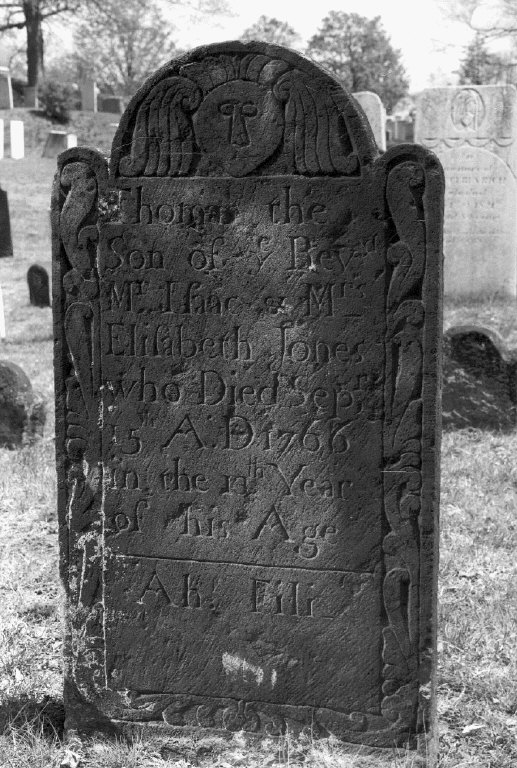 Thomas the
Son of yͤ Revᵈ
Mʳ. Isaac & Mʳˢ
Elisabeth Jones
who Died Sepᵗ
15 A D 1766
in the 11ᵗʰ Year
of his Age
Ah! Fili